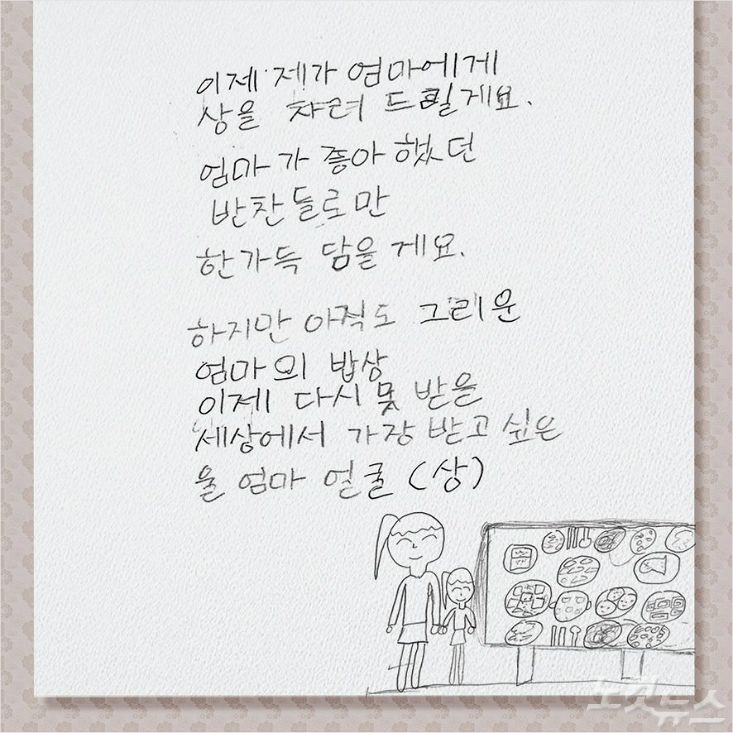 이제 제가 엄마에게
상을 차려 드릴게요.
엄마가 좋아했던
반찬들로만
한가득 담을게요.
하지만 아직도 그리운
엄마의 밥상
이제 다시 못 받을
세상에서 가장 받고 싶은
울 엄마 얼굴 (상)
노컷뉴스